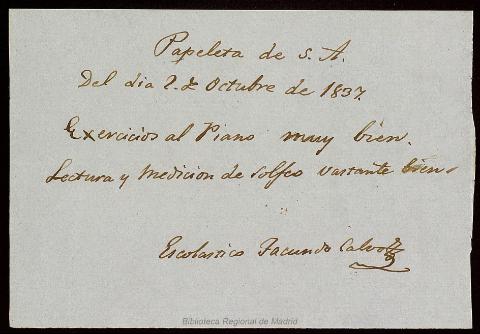 Papeleta de S. A.
Del dia 2 de Octubre de 1837.
Exercicios al Piano muy bien.
Lectura y Medicion de Solfeo vastante bien.
Escolastico Facundo Calvo
Biblioteca Regional de Madrid